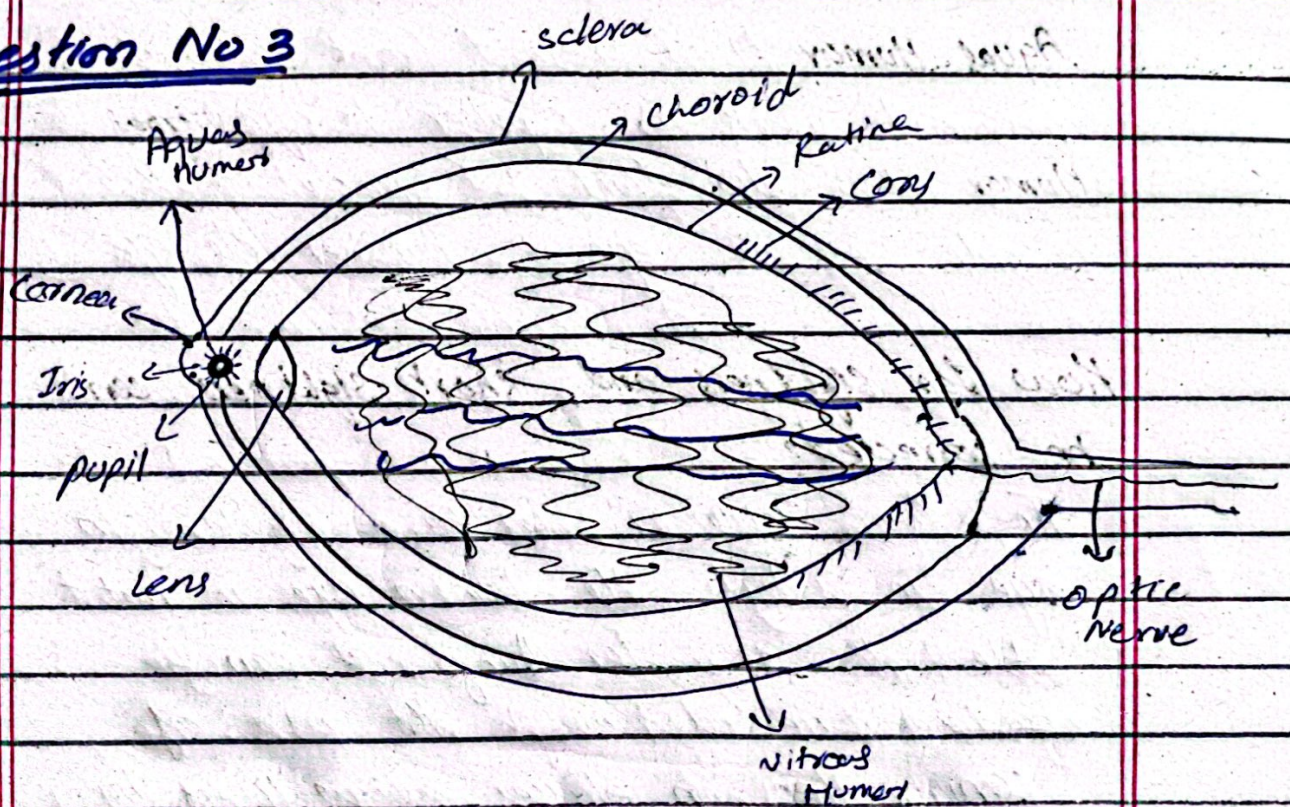 estion No 3
sclera
choroid
Ratina
Cony
Aquas
Humers
Cornea
Iris
pupil
Lens
optic
Nerve
Vitreas
Humers